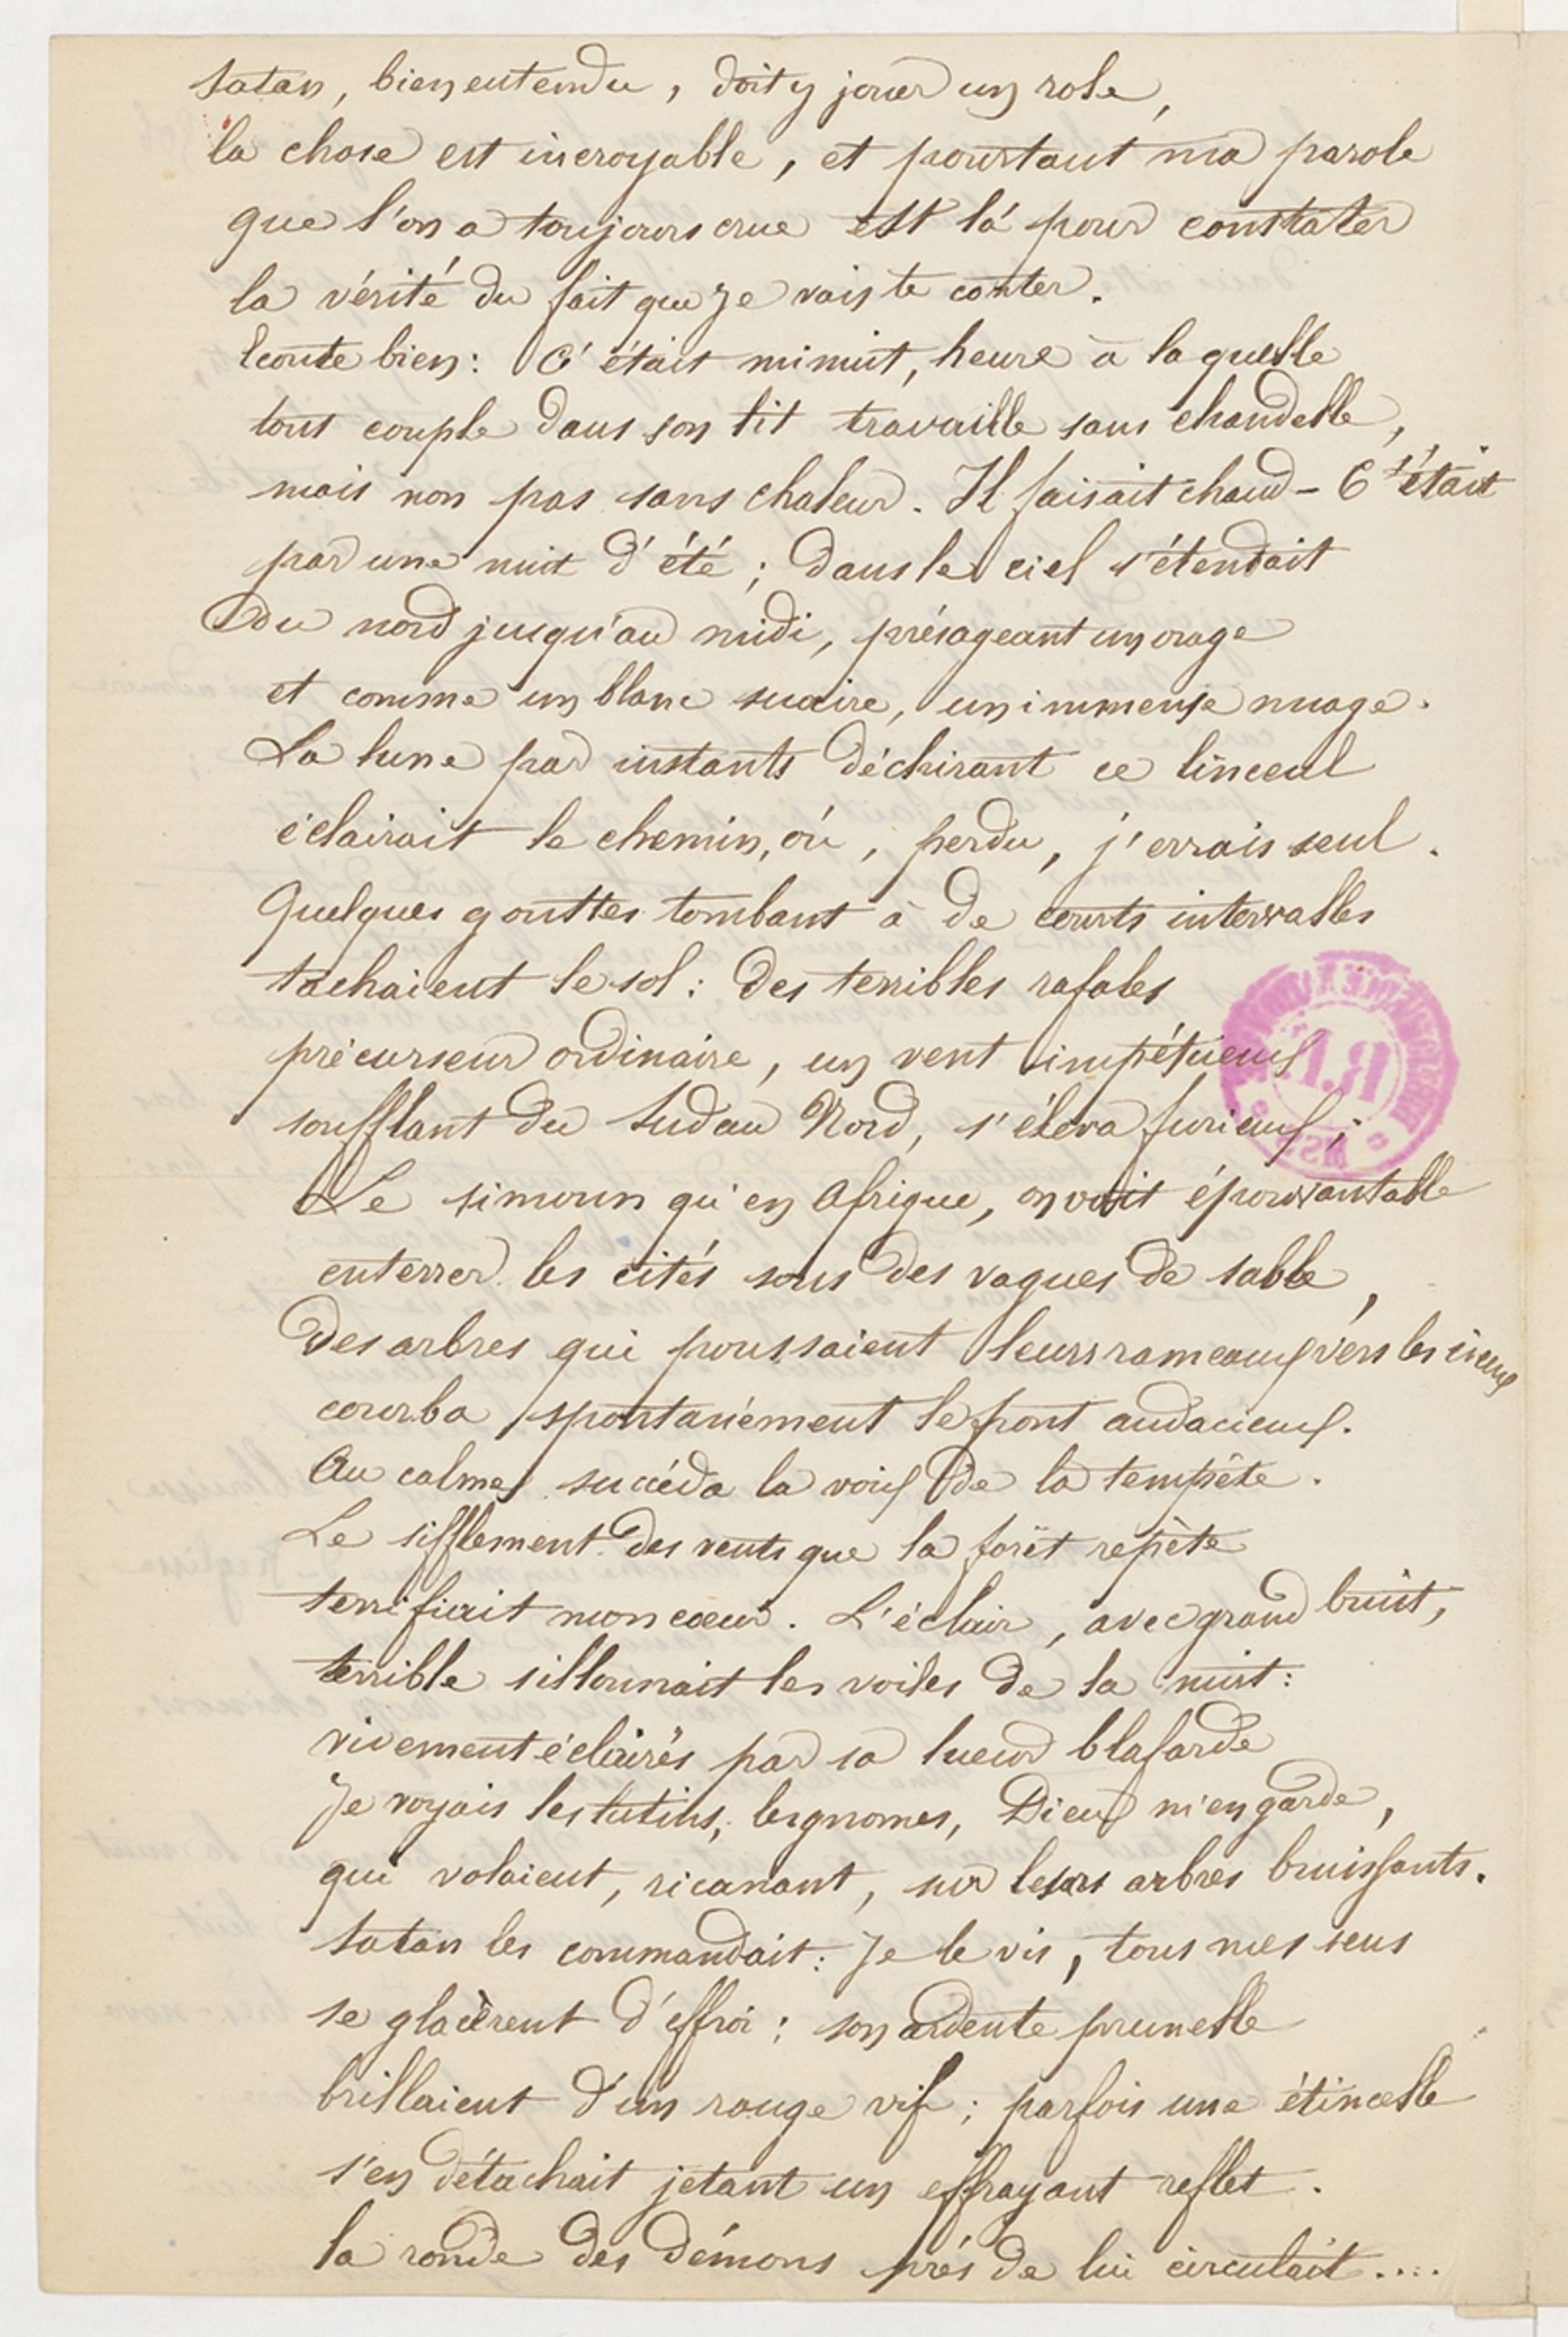 Satan, bien entendu, doit y jouer un role,
la chose est incroyable, et pourtant ma parole
que l'on a toujours crue est là pour constater
la vérité du fait que je vais te conter.
Ecoute bien: C'était minuit, heure à la quelle
tout couple dans son lit travaille sans chandelle,
mais non pas sans chaleur. Il faisait chaud - C'était
par une nuit d'été; dans le ciel s'étendait
Du nord jusqu'au midi, présageant un orage
et comme un blanc suaire, un immense nuage.
La lune par instants déchirant ce linceul
éclairait le chemin, où, perdu, j'errais seul.
Quelques gouttes tombant à de courts intervalles
tachaient le sol: des terribles rafales
précurseur ordinaire, un vent impétueux
soufflant du Sud au Nord, s'éleva furieux;
Le simoun qu'en Afrique, on voit épouvantable
enterrer les cités sous des vagues de sable,
Des arbres qui poussaient leurs rameaux vers les cieux
courba spontanément le front audacieux.
Au calme succéda la voix de la tempête.
Le sifflement des vents que la forêt repète
terrifiait mon cœur. L'éclair, avec grand bruit,
terrible sillonnait les voiles de la nuit:
vivement éclairés par sa lueur blafarde
Je voyais les lutins, les gnomes, Dieu m'en garde,
qui volaient, ricanant, sur les arbres bruissants.
Satan les commandait: Je le vis, tous mes sens
se glacèrent d'effroi: son ardente prunelle
brillaient d'un rouge vif; parfois une étincelle
s'en détachait jetant un effrayant reflet.
la ronde des démons près de lui circulait....
B.R.
MSS